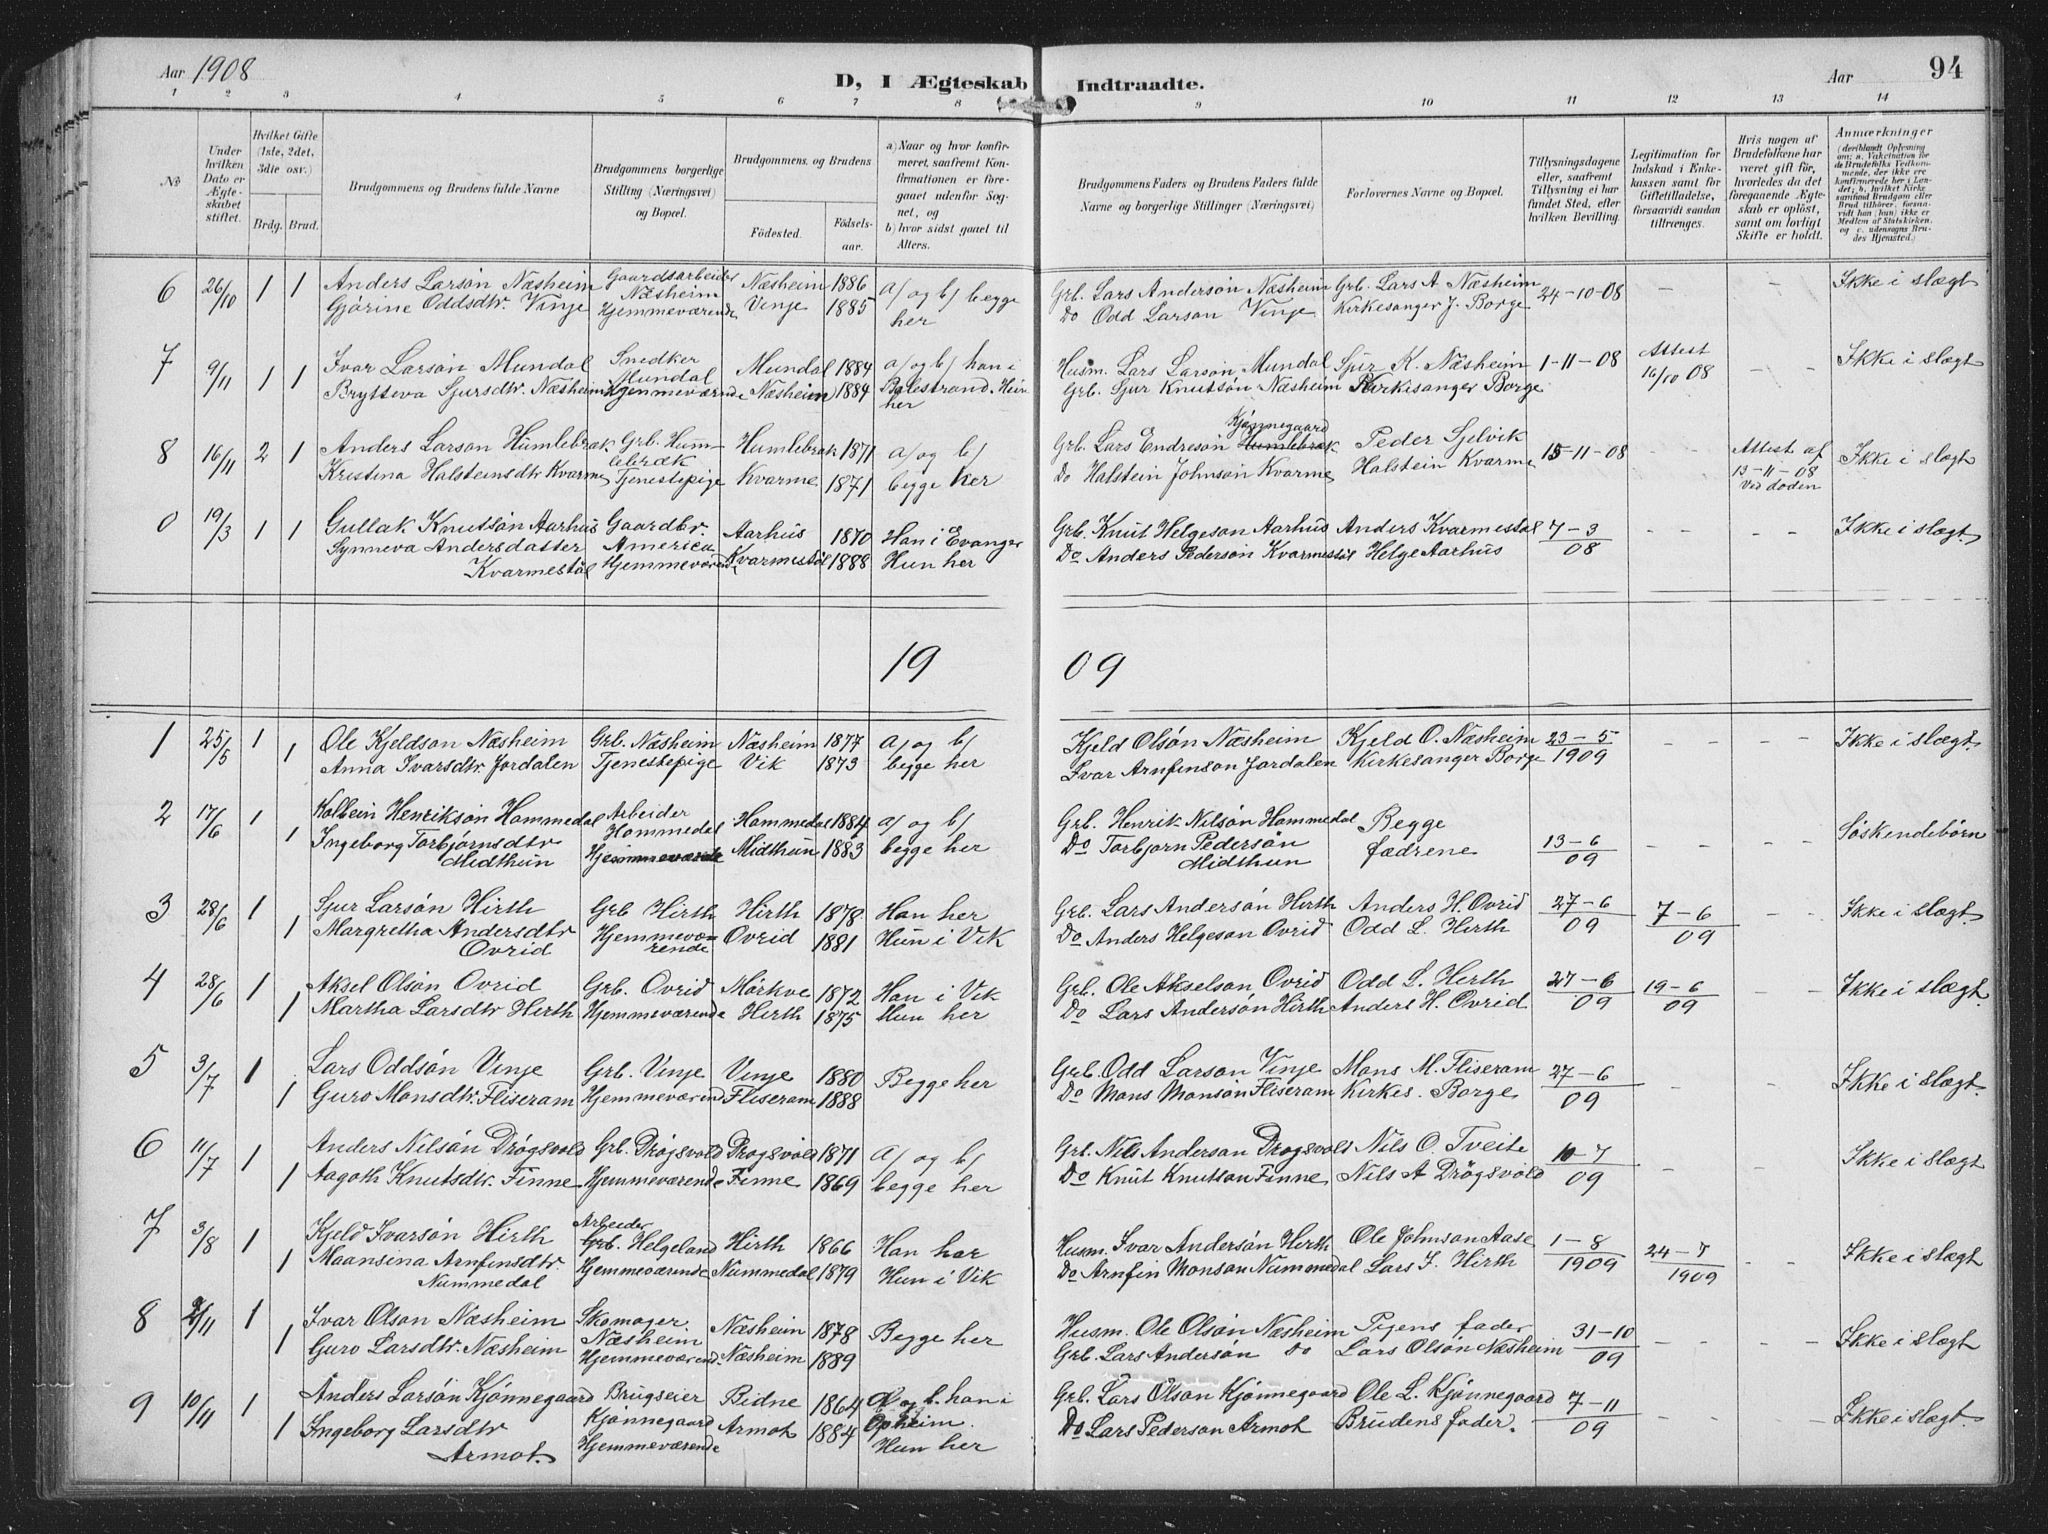 Aar 1908
D, I Ægteskab Indtraadte.
Aar
94
1 2 3 4 5 6 7 8 9 10 11 12 13 14
No
Under hvilken Dato er Ægteskabet stiftet.
Hvilket Gifte (1ste, 2det, 3die osv.)
Brdg. Brud.
Brudgommens og Brudens fulde Navne
Brudgommens borgerlige Stilling (Næringsvei) og Bopæl.
Brudgommens, og Brudens
Fødested.
Fødselsaar.
a) Naar og hvor konfirmeret, saafremt Konfirmationen er foregaaet udenfor Sognet, og
b) hvor sidst gaaet til Alters.
Brudgommens Faders og Brudens Faders fulde Navne og borgerlige Stillinger (Næringsvei)
Forlovernes Navne og Bopæl.
Tillysningsdagene eller, saafremt Tillysning ei har fundet Sted, efter hvilken Bevilling.
Legitimation for Indskud i Enkekassen samt for Giftetilladelse, forsaavidt saadan tiltrænges.
Hvis nogen af Brudefolkene har været gift, hvorledes da det foregaaende Ægteskab er opløst, samt om lovligt Skifte er holdt.
Anmærkninger
(deriblandt Oplysning om: a. Vakcination for de Brudefolks Vedkommende, der ikke ere konfirmerede her i Landet; b. hvilket Kirkesamfund Brudgom eller Brud tilhører, forsaavidt han (hun) ikke er Medlem af Statskirken, og c. udensogns Brudes Hjemsted.)
6 26/10 1 1 Anders Larsøn Næsheim Gaardsarbeider Næsheim 1886 a/ og b/ begge Grb. Lars Andersøn Næsheim Grb. Lars A Næsheim 24-10-08 - - Ikke i slægt
Næsheim
Gjørine Oddsdtr. Vinje Hjemmeværende Vinje 1885 her Do Odd Larson Vinje Kirkesanger J. Borge
7 9/11 1 1 Ivar Larsøn Mundal Snedker Mundal 1884 a/ og b/ han i Husm. Lars Larson Mundal Sjur K. Næsheim 1-11-08 Attest 16/10 08 - - Ikke i slægt
Mundal
Brytteva Sjursdtr. Næsheim Hjemmeværende Næsheim 1884 Balestrand. Hun her Grb. Sjur Knutsøn Næsheim Kirkesanger Borge
8 16/11 2 1 Anders Larsøn Humlebræk Grb. Humlebræk Humlebrak 1871 a/ og b/ Grb. Lars Endresøn Humlebræk Kjønnegaard Peder Sjelvik 15-11-08 - - Attest af 13-11-08 Ved døden Ikke i slægt
Kristina Halsteinsdtr Kvarme Tjenestepige Kvarme 1871 begge her Do Halstein Johnsøn Kvarme Halstein Kvarme
0 19/3 1 1 Gullak Knutsøn Aarhus Gaardbr. Aarhus 1870 Han i Evanger Grb. Knut Helgeson Aarhus Anders Kvarmestøl 7-3 08 - - - - Ikke i slægt.
America
Synneva Andersdatter Kvarmestøl Hjemmeværend Kvarmestøl 1888 Hun her Do Anders Pedersøn Kvarmestøl Helge Aarhus
19 09
1 25/5 1 Ole Kjeldson Næsheim Grb. Næsheim Næsheim 1877 a/ og b/ Kjeld Olsøn Næsheim Kjeld O. Næsheim 23-5 1909 - - - - Ikke i slægt
1 Anna Ivarsdtr Jordalen Tjenestepige Vik 1873 begge her Ivar Arnfinson Jordalen Kirkesanger Borge
2 17/6 1 Kolbein Henriksøn Hammedal Arbeider Hammedal Hammedal 1884 a/ og b/ Grb. Henrik Nilsøn Hammedal Begge 13-6 09 - - - - Søskendebørn
1 Ingeborg Torbjørnsdtr Midthun Hjemmeværende Midthun 1883 begge her Do Torbjørn Pedersøn Midthun fædrene
3 28/6 1 Sjur Larsøn Hirth Grb Hirth Hirth 1878 Han her Grb. Lars Andersøn Hirth Anders H. Ovrid 27-6 09 7-6 09 - - Ikke i slægt.
1 Margretha Andersdtr Ovrid Hjemmeværende Ovrid 1881 Hun i Vik Do Anders Helgeson Ovrid Odd L. Hirth
4 28/6 1 Aksel Olsøn Ovrid Grb. Ovrid Mørkve 1872 Han i Vik Grb. Ole Akselson Ovrid Odd L. Hirth 27-6 09 19-6 09 - - Ikke i slægt.
1 Martha Larsdtr Hirth Hjemmeværende Hirth 1875 Hun her Do Lars Andersøn Hirth Anders H. Ovrid
5 3/7 1 Lars Oddsøn Vinje Grb. Vinje Vinje 1880 Begge her Grb. Odd Larson Vinje Mons M. Fliseram 27-6 09 - - - Ikke i slægt.
1 Guro Monsdtr. Fliseram Hjemmeværend Fliseram 1888 Do Mons Monsøn Fliseram Kirkes. Borge
6 11/7 1 Anders Nilsøn Drøgsvold Grb. Drøgsvold Drogsvold 1871 a/ og b/ Grb. Nils Anderson Drogsvold Nils O. Tveite 10-7 09 - - - Ikke i slægt
1 Aagoth Knutsdtr. Finne Hjemmeværende Finne 1869 begge her Do Knut Knutson Finne Nils A Drøgsvold
7 3/8 1 Kjeld Ivarsøn Hirth Arbeider Grb. Helgeland Hirth 1866 Han her Husm. Ivar Andersøn Hirth Ole Johnson Aase 1-8 1909 24-7 1909 - - Ikke i slægt
1 Maansina Arnfinsdtr Nummedal Hjemmeværende Nummedal 1879 Hun i Vik Do Arnfin Monsøn Nummedal Lars I. Hirth
8 2/11 1 Ivar Olson Næsheim Skomager Næsheim Næsheim 1878 Begge her Husm. Ole Olsøn Næsheim Pigens fader 31-10 09 - - - - Ikke i slægt
1 Guro Larsdtr. Næsheim Hjemmeværend. Næsheim 1889 Grb. Lars Andersøn Do Lars Olsøn Næsheim
9 10/11 1 Anders Larsøn Kjønnegaard Brugseier Kjønnegaard Bidne 1864 a og b. han i Opheim. Grb. Lars Olson Kjønnegaard Ole L. Kjønnegaard 7-11 09 - - - Ikke i slægt.
1 Ingeborg Larsdtr Armot. Hjemmeværende Armot 1884 Hun her Do Lars Pederson Armot Brudens fader.